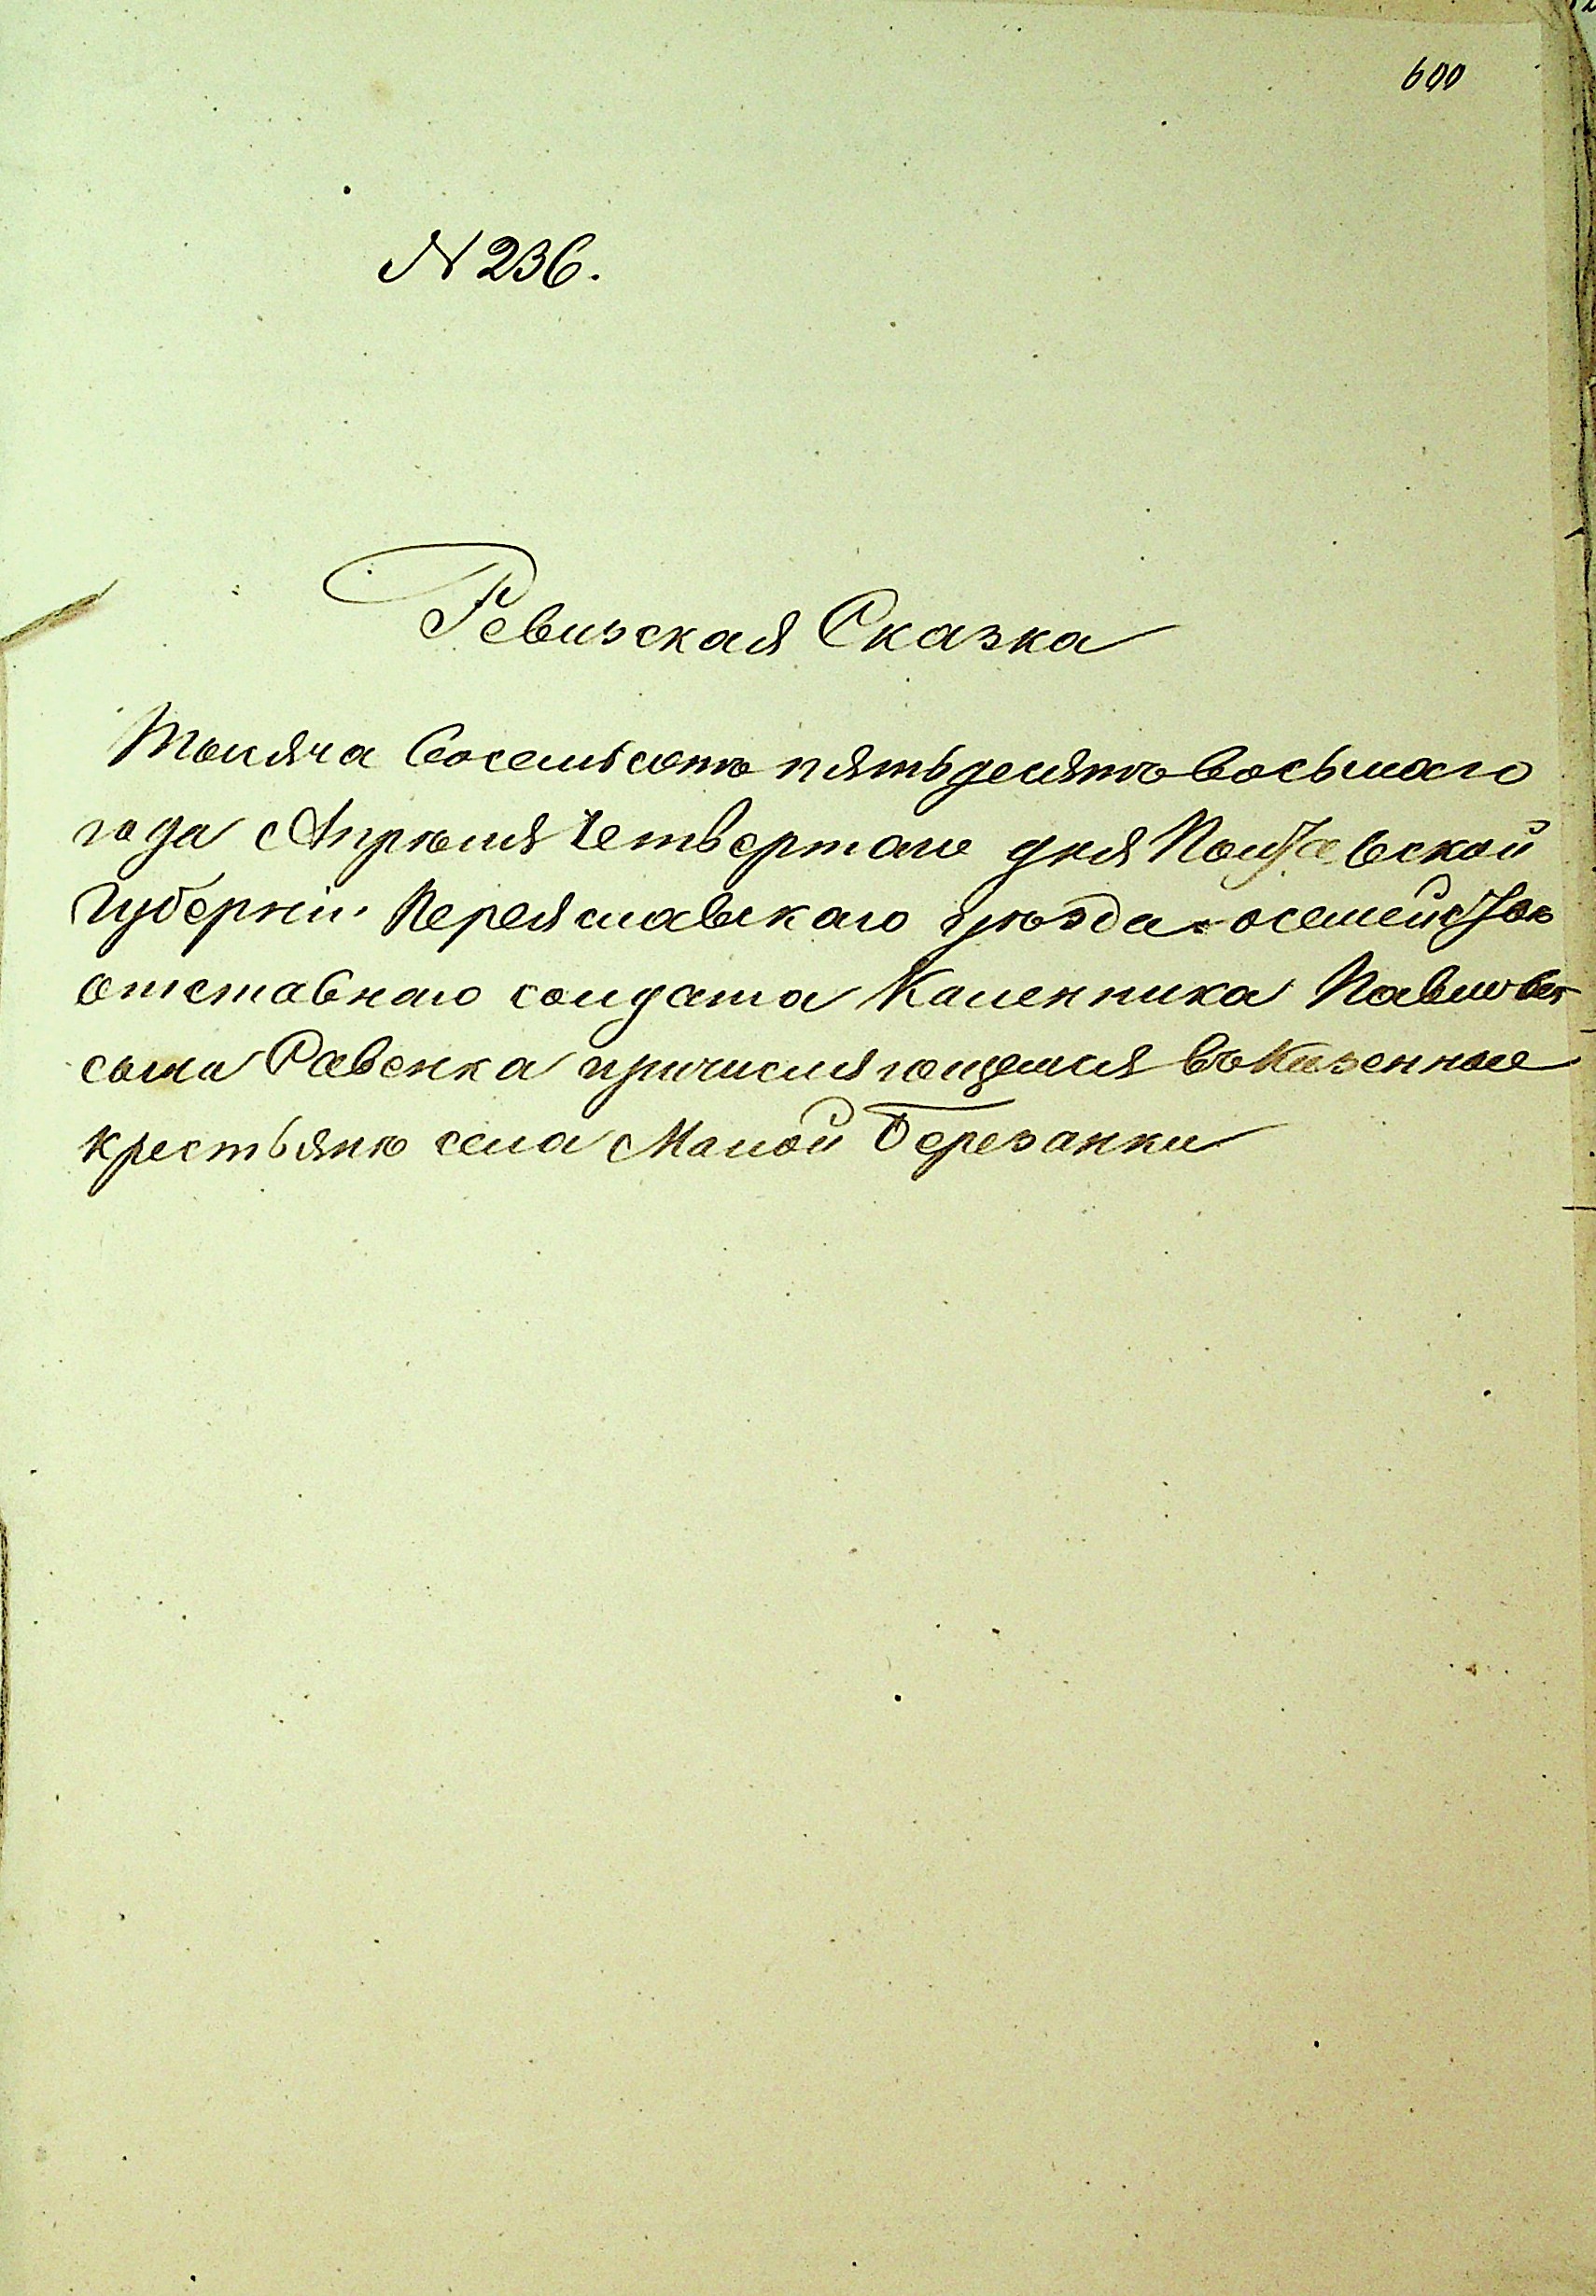 600
№ 236.
Ревизская Сказка
Тысяча восемьсотъ пятьдесятъ восьмаго
года Апрѣля четвертаго дня Полтавской
Губерніи Переяславскаго уѣзда о семействѣ
отставнаго солдата Каленника Павлова
сына Равенка причисляющемся въ казенные
крестьянѣ села Малой Березанки